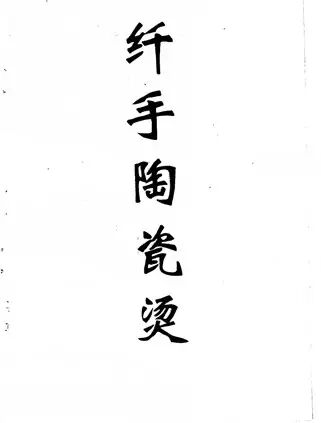 纤手陶瓷烫